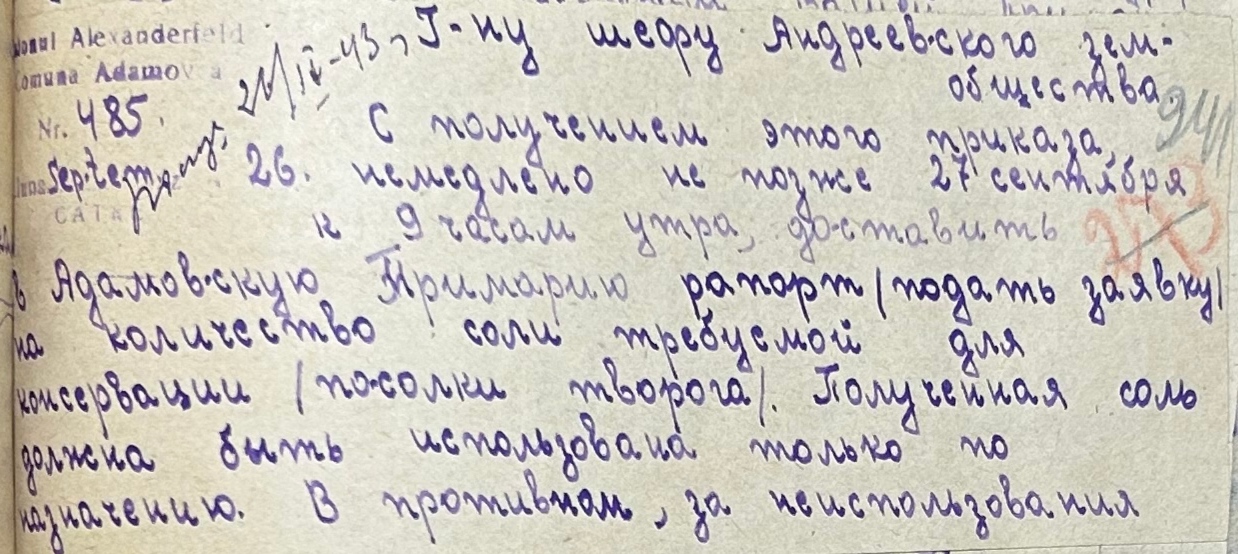 Alexanderfeld
Comuna Adamovca
Nr. 485.
Septem
26.
Г-ну шефру Андреевского зем-
общества.
С получением этого приказа,
немедлено не позже 27 сентября
к 9 часам утра, доставить
в Адамовскую Примарию рапорт /подать заявку/
на количество соли требуемой для
консервации /посолки творога/. Полученная соль
должна быть использована только по
назначению. В противном, за неиспользования
941
273